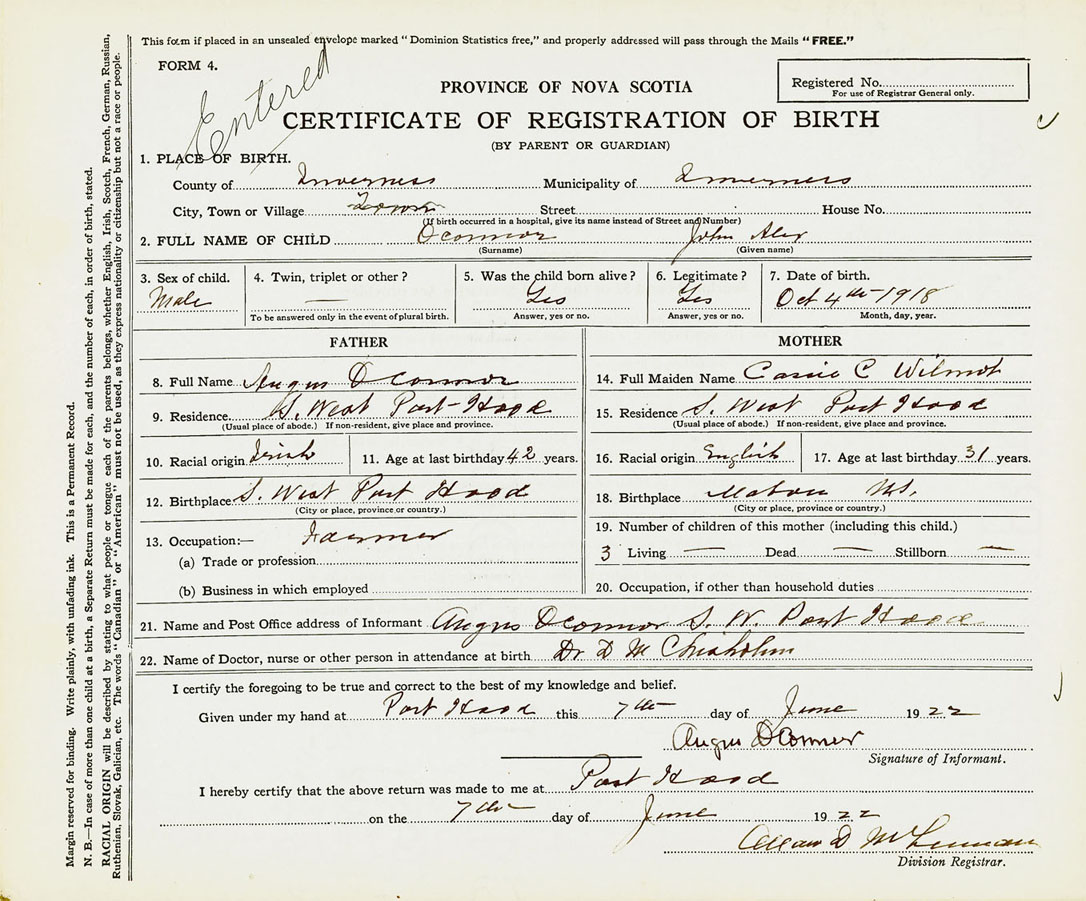 This form if placed in an unsealed envelope marked "Dominion Statistics free," and properly addressed will pass through the Mails "FREE."
FORM 4.
Entered
Registered No.
For use of Registrar General only.
PROVINCE OF NOVA SCOTIA
CERTIFICATE OF REGISTRATION OF BIRTH
(BY PARENT OR GUARDIAN)
1. PLACE OF BIRTH.
County of Inverness Municipality of Inverness
City, Town or Village Street House No.
(If birth occurred in a hospital, give its name instead of Street and Number)
2. FULL NAME OF CHILD Oconnor John Alex
(Surname) (Given name)
3. Sex of child. 4. Twin, triplet or other? 5. Was the child born alive? 6. Legitimate? 7. Date of birth.
Male — Yes Yes Oct 4th 1918
To be answered only in the event of plural birth. Answer, yes or no. Answer, yes or no. Month, day, year.
FATHER
8. Full Name Angus Oconnor
9. Residence S. West Port Hood
(Usual place of abode.) If non-resident, give place and province.
10. Racial origin Irish 11. Age at last birthday 42 years.
12. Birthplace S. West Port Hood
(City or place, province or country.)
13. Occupation:— Farmer
(a) Trade or profession
(b) Business in which employed
MOTHER
14. Full Maiden Name Cassie C Wilmot
15. Residence S. West Port Hood
(Usual place of abode.) If non-resident, give place and province.
16. Racial origin English 17. Age at last birthday 31 years.
18. Birthplace Mabou N.S.
(City or place, province or country.)
19. Number of children of this mother (including this child.)
3 Living — Dead — Stillborn —
20. Occupation, if other than household duties
21. Name and Post Office address of Informant Angus Oconnor S. W. Port Hood
22. Name of Doctor, nurse or other person in attendance at birth Dr D M Chisholm
I certify the foregoing to be true and correct to the best of my knowledge and belief.
Given under my hand at Port Hood this 7th day of June 1922
Angus OConnor
Signature of Informant.
I hereby certify that the above return was made to me at Port Hood
on the 7th day of June 1922
Allan D
Division Registrar.
Margin reserved for binding. Write plainly, with unfading ink. This is a Permanent Record.
N. B.—In case of more than one child at a birth, a Separate Return must be made for each, and the number of each, in order of birth, stated.
RACIAL ORIGIN will be described by stating to what people or tongue each of the parents belongs, whether English, Irish, Scotch, French, German, Russian,
Ruthenian, Slovak, Galician, etc. The words "Canadian" or "American" must not be used, as they express nationality or citizenship but not a race or people.